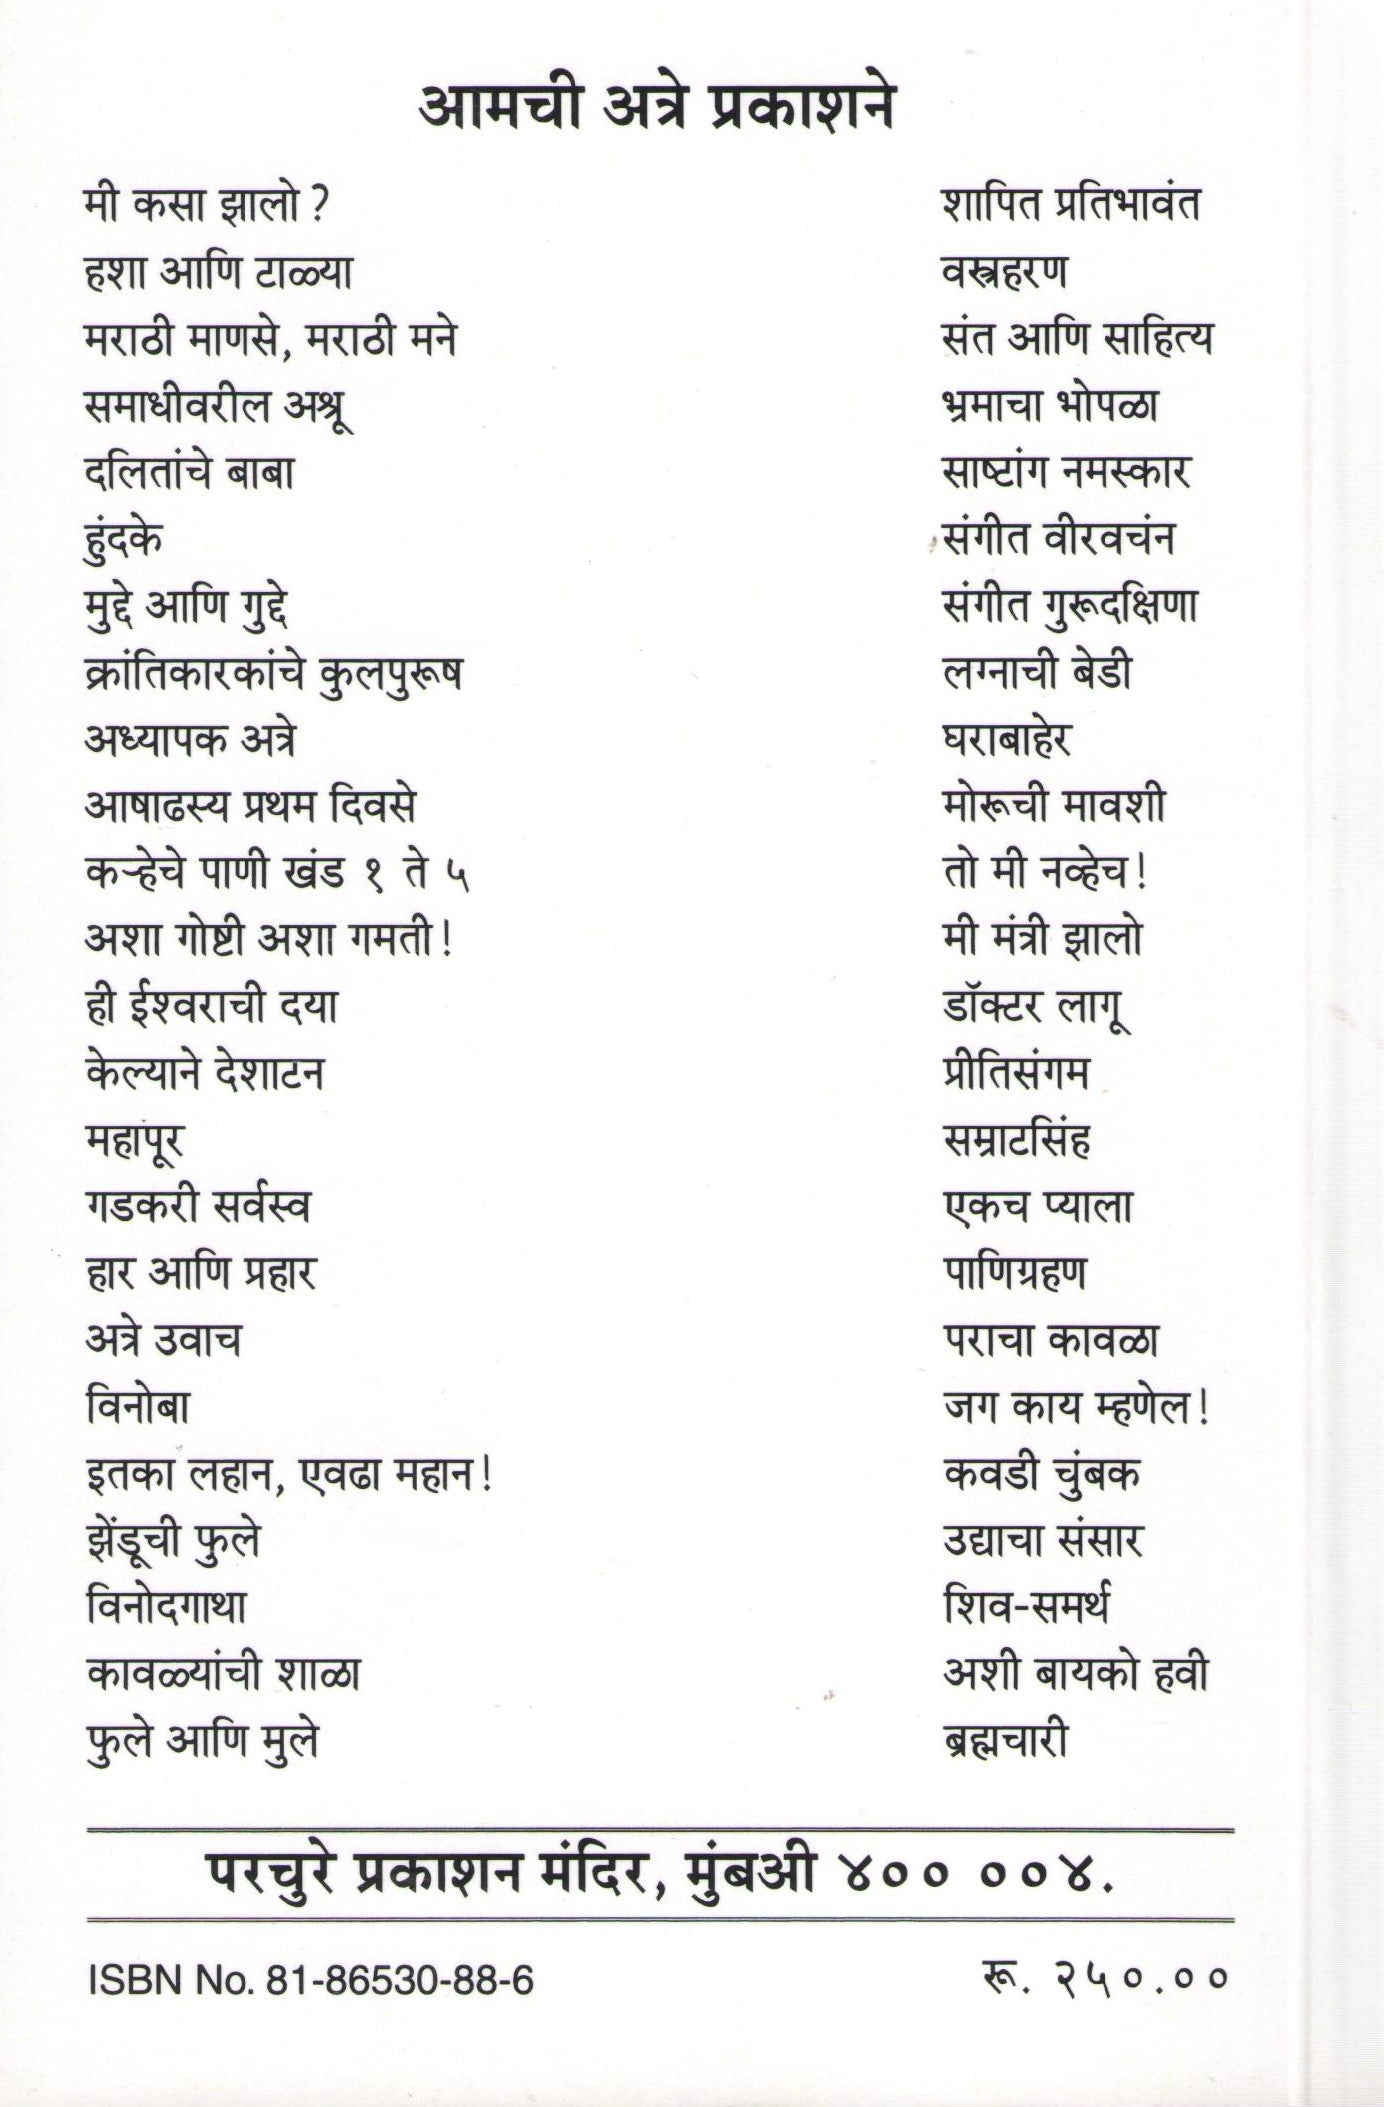 आमची अत्रे प्रकाशने
मी कसा झालो?
हशा आणि टाळ्या
मराठी माणसे, मराठी मने
समाधीवरील अश्रू
दलितांचे बाबा
हुंदके
मुद्दे आणि गुद्दे
क्रांतिकारकांचे कुलपुरूष
अध्यापक अत्रे
आषाढस्य प्रथम दिवसे
कऱ्हेचे पाणी खंड १ ते ५
अशा गोष्टी अशा गमती!
ही ईश्वराची दया
केल्याने देशाटन
महापूर
गडकरी सर्वस्व
हार आणि प्रहार
अत्रे उवाच
विनोबा
इतका लहान, एवढा महान!
झेंडूची फुले
विनोदगाथा
कावळ्यांची शाळा
फुले आणि मुले
शापित प्रतिभावंत
वस्त्रहरण
संत आणि साहित्य
भ्रमाचा भोपळा
साष्टांग नमस्कार
संगीत वीरवचंन
संगीत गुरूदक्षिणा
लग्नाची बेडी
घराबाहेर
मोरूची मावशी
तो मी नव्हेच!
मी मंत्री झालो
डॉक्टर लागू
प्रीतिसंगम
सम्राटसिंह
एकच प्याला
पाणिग्रहण
पराचा कावळा
जग काय म्हणेल!
कवडी चुंबक
उद्याचा संसार
शिव-समर्थ
अशी बायको हवी
ब्रह्मचारी
परचुरे प्रकाशन मंदिर, मुंबअी ४०० ००४.
ISBN No. 81-86530-88-6
रू. २५०.००